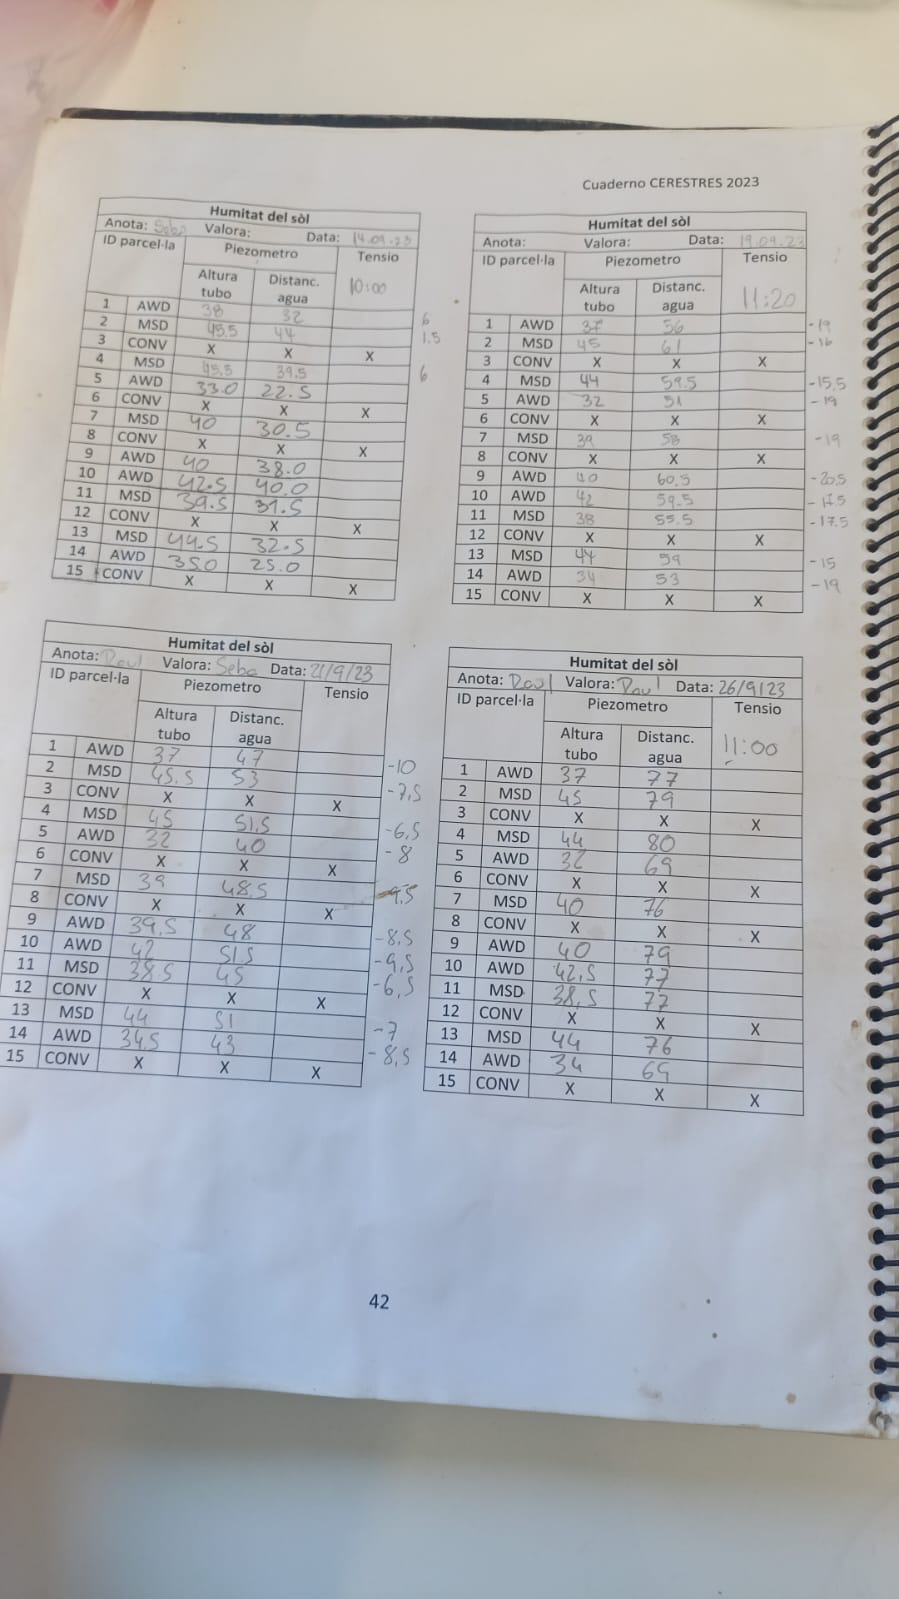 Cuaderno CERESTRES 2023
Humitat del sòl
Anota: Seba Valora: Data: 14.09.23
ID parcel·la Piezometro Tensio
Altura tubo Distanc. agua 10:00
1 AWD 38 32 6
2 MSD 45.5 44 1.5
3 CONV X X X
4 MSD 45.5 39.5 6
5 AWD 33.0 22.5
6 CONV X X X
7 MSD 40 30.5
8 CONV X X X
9 AWD 40 38.0
10 AWD 42.5 40.0
11 MSD 39.5 31.5
12 CONV X X X
13 MSD 44.5 32.5
14 AWD 35.0 25.0
15 CONV X X X
Humitat del sòl
Anota: Valora: Data: 19.09.23
ID parcel·la Piezometro Tensio
Altura tubo Distanc. agua 11:20
1 AWD 37 56 -19
2 MSD 45 61 -16
3 CONV X X X
4 MSD 44 59.5 -15,5
5 AWD 32 51 -19
6 CONV X X X
7 MSD 39 58 -19
8 CONV X X X
9 AWD 40 60,5 -20,5
10 AWD 42 59.5 -17.5
11 MSD 38 55.5 -17.5
12 CONV X X X
13 MSD 44 59 -15
14 AWD 34 53 -19
15 CONV X X X
Humitat del sòl
Anota: Raul Valora: Seba Data: 21/9/23
ID parcel·la Piezometro Tensio
Altura tubo Distanc. agua
1 AWD 37 47 -10
2 MSD 45,5 53 -7,5
3 CONV X X X
4 MSD 45 51,5 -6,5
5 AWD 32 40 -8
6 CONV X X X
7 MSD 39 48,5 -9,5
8 CONV X X X
9 AWD 39,5 48 -8,5
10 AWD 42 51,5 -9,5
11 MSD 38,5 45 -6,5
12 CONV X X X
13 MSD 44 51 -7
14 AWD 34,5 43 -8,5
15 CONV X X X
Humitat del sòl
Anota: Raul Valora: Raul Data: 26/9/23
ID parcel·la Piezometro Tensio
Altura tubo Distanc. agua 11:00
1 AWD 37 77
2 MSD 45 79
3 CONV X X X
4 MSD 44 80
5 AWD 32 69
6 CONV X X X
7 MSD 40 76
8 CONV X X X
9 AWD 40 79
10 AWD 42,5 77
11 MSD 38,5 77
12 CONV X X X
13 MSD 44 76
14 AWD 34 69
15 CONV X X X
42